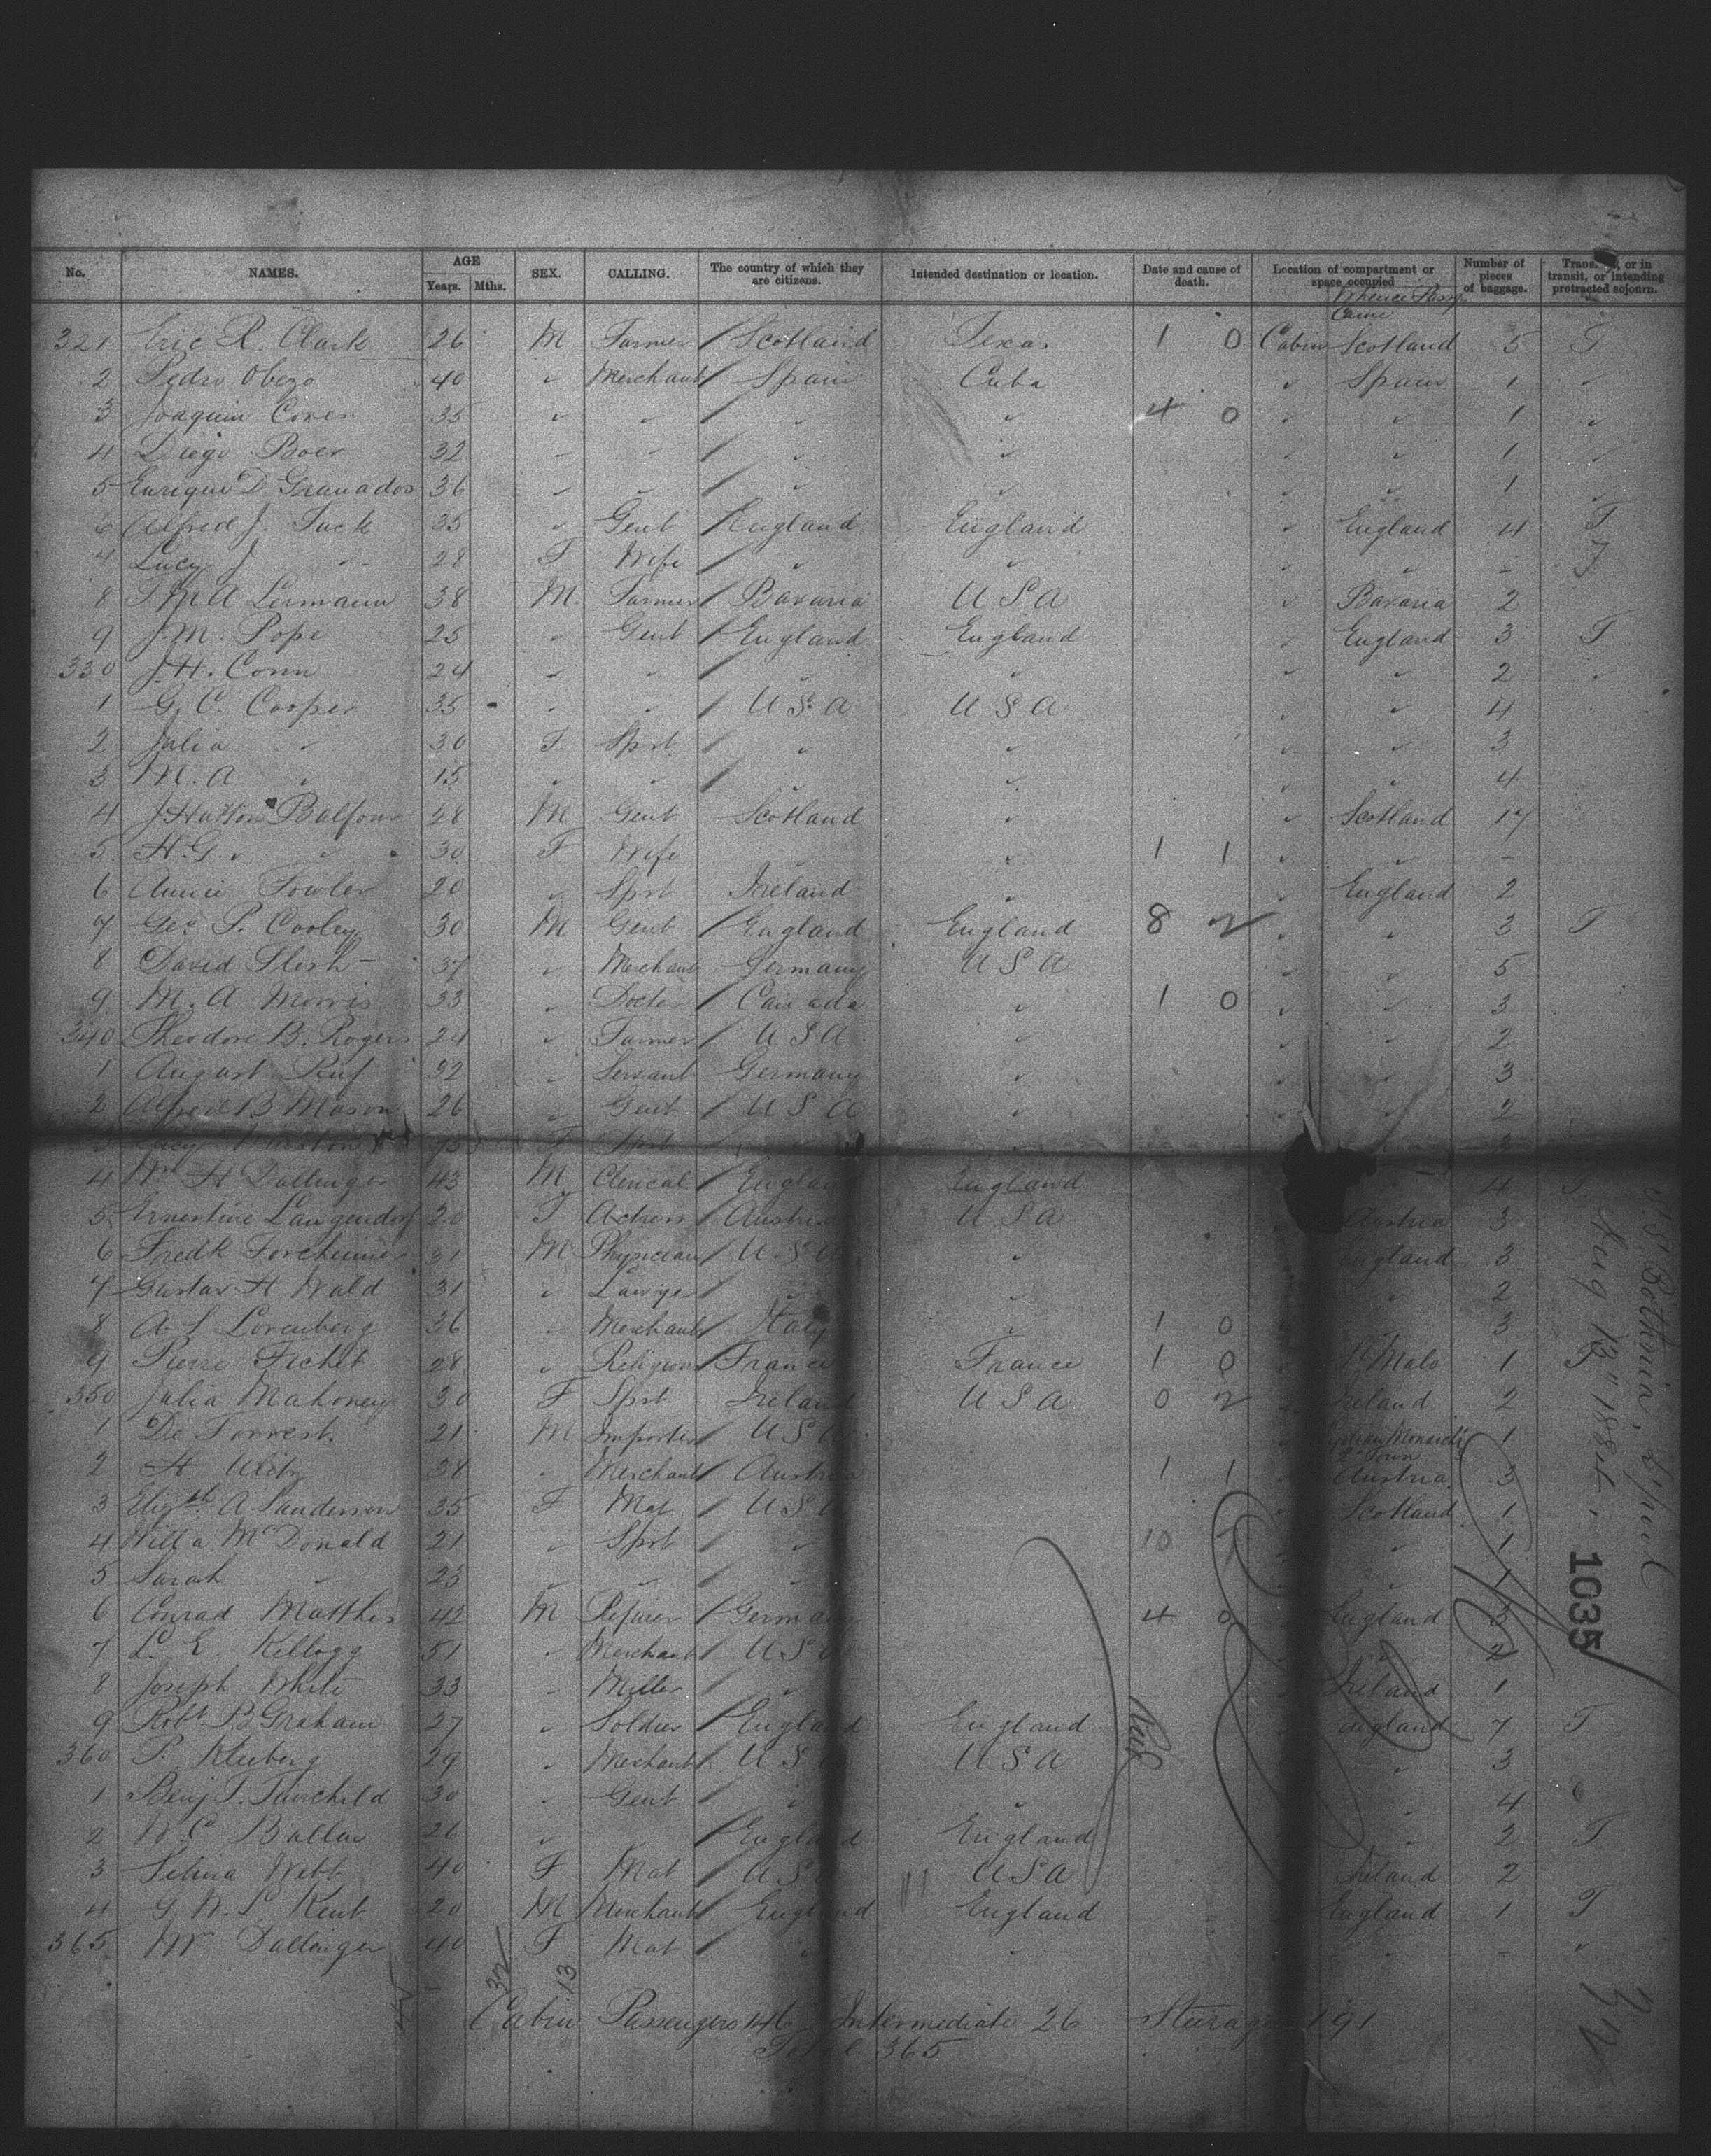 No. NAMES. AGE Years. Mths. SEX. CALLING. The country of which they are citizens. Intended destination or location. Date and cause of death. Location of compartment or space occupied Number of pieces of baggage. transit, or intending protracted sojourn.
Whence Came
321 Eric R. Clark 26 M Farmer Scotland Texas 1 0 Cabin Scotland 5 T
2 Pedro Obezo 40 " Merchant Spain Cuba " Spain 1 "
3 Joaquin 35 " " " " 4 0 " " 1 "
4 Diego 32 " " " " " " 1 "
5 Enrique D Granados 36 " " " " " " 1 "
6 Alfred J. Tuck 35 " Gent England England " England 4 T
7 Lucy J " 28 F Wife " " " " - T
8 38 M. Farmer Bavaria U S A " Bavaria 2
9 J. M. Pope 25 " Gent England England " England 3 T
330 J. H. Conn 24 " " " " " " 2 "
1 G. C. Cooper 35 " " U S A U S A " " 4
2 Julia " 30 F Spst " " " " 3
3 M. A " 15 " " " " " " 4
4 J Hutton Balfour 28 M Gent Scotland " " Scotland 17
5 H. G. " " 30 F Wife " " 1 1 " " -
6 Annie Fowler 20 " Spst Ireland " " England 2
7 Geo P. Cooley 30 M Gent England England 8 2 " " 3 T
8 David 37 " Merchant Germany U S A " " 5
9 M. A Morris 33 " Doctor Canada " 1 0 " " 3
340 Theodore B. Rogers 24 " Farmer U S A " " " 2
1 August Ruf 32 " Servant Germany " " " 3
2 Alfred B Mason 26 " Gent U S A " " " 2
3 Lucy F Spst
4 Wm H Dallinger 43 M Clerical England England 4 T
5 Ernestine Langendorf 20 F Actress Austria U S A Austria 3
6 Fredk Forcheimer 31 M Physician U S A " England 3
7 Gustav H Wald 31 " Lawyer " " " 2
8 A. S Lorenberg 36 " Merchant Italy " 1 0 3
9 Pierre Fichet 28 " Religious France France 1 0 St Malo 1 T
350 Julia Mahoney 30 F Spst Ireland U S A 0 2 Ireland 2
1 De Forrest. 21 M Importer U S A 1
2 H 38 " Merchant Austria 1 1 " Austria 3
3 Elizth A Sanderson 35 F Mat U S A Scotland 1
4 Willa McDonald 21 " Spst " 10 " 1
5 Sarah " 23 " " " " 1
6 Conrad Matthes 42 M Refiner Germany 4 0 England 3
7 L. E. Kellogg 51 " Merchant U S A " 2
8 Joseph White 33 " Miller " Ireland 1
9 Robt B Graham 27 " Soldier England England England 7 T
360 P. Kleeberg 29 " Merchant U S A U S A " 3
1 Benj F. Fairchild 30 " Gent " " " 4
2 W. C 26 " England England " 2 T
3 Selina Webb 40 F Mat U S A U S A Ireland 2
4 G. W. L Kent 20 M Merchant England England England 1 T
365 Mrs Dallinger 40 F Mat " " " - "
32 13
Cabin Passengers 146 Intermediate 26 Steerage 191
Total 365
S. S. Bothnia, L'pool
Aug 13" 1884.
1035